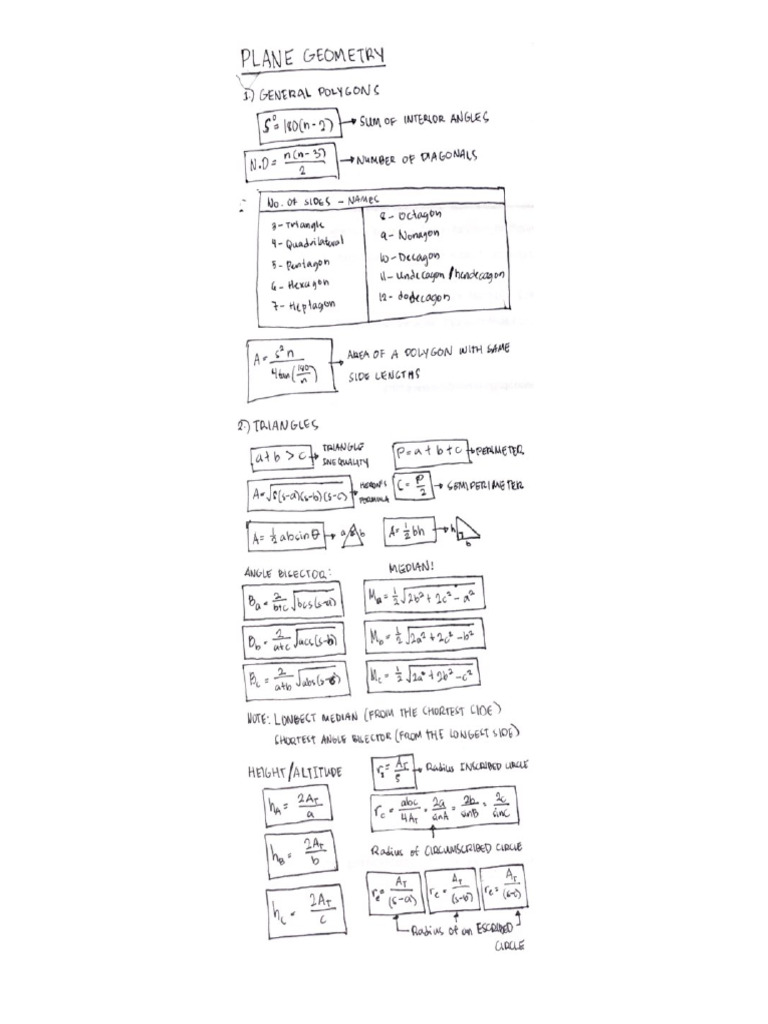 PLANE GEOMETRY
1.) GENERAL POLYGONS
S° = 180(n-2) → SUM OF INTERIOR ANGLES
N.D = n(n-3)/2 → NUMBER OF DIAGONALS
No. OF SIDES - NAMES
3 - Triangle
4 - Quadrilateral
5 - Pentagon
6 - Hexagon
7 - Heptagon
8 - Octagon
9 - Nonagon
10 - Decagon
11 - Undecagon / hendecagon
12 - dodecagon
A = s²n / 4tan(180/n) → AREA OF A POLYGON WITH SAME
SIDE LENGTHS
2.) TRIANGLES
a+b > c → TRIANGLE INEQUALITY
P = a+b+c → PERIMETER
A = √s(s-a)(s-b)(s-c) → HERON'S FORMULA
S = P/2 → SEMIPERIMETER
A = ½ absinθ → a θ b
A = ½ bh → h b
ANGLE BISECTOR:
Ba = 2/b+c √bcs(s-a)
Bb = 2/a+c √acs(s-b)
Bc = 2/a+b √abs(s-c)
MEDIAN:
Ma = ½ √2b² + 2c² - a²
Mb = ½ √2a² + 2c² - b²
Mc = ½ √2a² + 2b² - c²
NOTE: LONGEST MEDIAN (FROM THE SHORTEST SIDE)
SHORTEST ANGLE BISECTOR (FROM THE LONGEST SIDE)
HEIGHT/ALTITUDE
hA = 2AT/a
hB = 2AT/b
hc = 2AT/c
= AT/s → Radius INSCRIBED CIRCLE
rc = abc/4AT = 2a/sinA = 2b/sinB = 2c/sinC
Radius of CIRCUMSCRIBED CIRCLE
re = AT/(s-a)
re = AT/(s-b)
re = AT/(s-c)
Radius of an ESCRIBED
CIRCLE